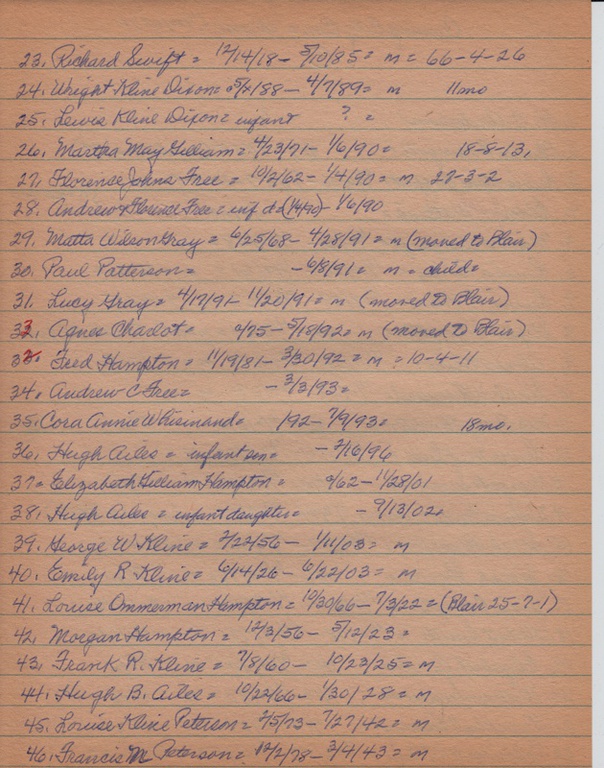 23. Richard Swift = 12/14/18 - 5/10/85 = m = 66-4-26
24. Wright Kline Dixon = 5/x/88 - 4/7/89 = m 11mo
25. Lewis Kline Dixon = infant ? =
26. Martha May Gilliam = 4/23/71 - 1/6/90 = 18-8-13,
27. Florence Johns Free = 10/2/62 - 1/4/90 = m 27-3-2
28. Andrew & Florence Free = inf d = (1/4/90) - 1/6/90
29. Matta Wilson Gray = 6/25/68 - 4/28/91 = m (moved to Blair)
30. Paul Patterson = - 6/8/91 = m = child =
31. Lucy Gray = 4/17/91 - 11/20/91 = m (moved to Blair)
32. Agnes Chadot = /75 - 5/18/92 = m (moved to Blair)
33. Fred Hampton = 11/19/81 - 3/30/92 = m = 10-4-11
34. Andrew C Free = - 3/3/93 =
35. Cora Annie Whisinand = /92 - 7/9/93 = 18mo.
36. Hugh Ailes = infant son = - 2/16/96
37. Elizabeth Gilliam Hampton = /62 - 11/28/01
38. Hugh Ailes = infant daughter = - 9/13/02
39. George W Kline = 2/22/56 - 1/11/03 = m
40. Emily R Kline = 6/14/26 - 6/22/03 = m
41. Louise Ommerman Hampton = 10/30/66 - 7/3/22 = (Blair 25-7-1)
42. Morgan Hampton = 12/3/56 - 5/12/23 =
43. Frank R. Kline = 7/8/60 - 10/23/25 = m
44. Hugh B. Ailes = 10/22/66 - 1/30/28 = m
45. Louise Kline Peterson = 2/5/73 - 7/27/42 = m
46. Francis M Peterson = 12/2/78 - 3/4/43 = m